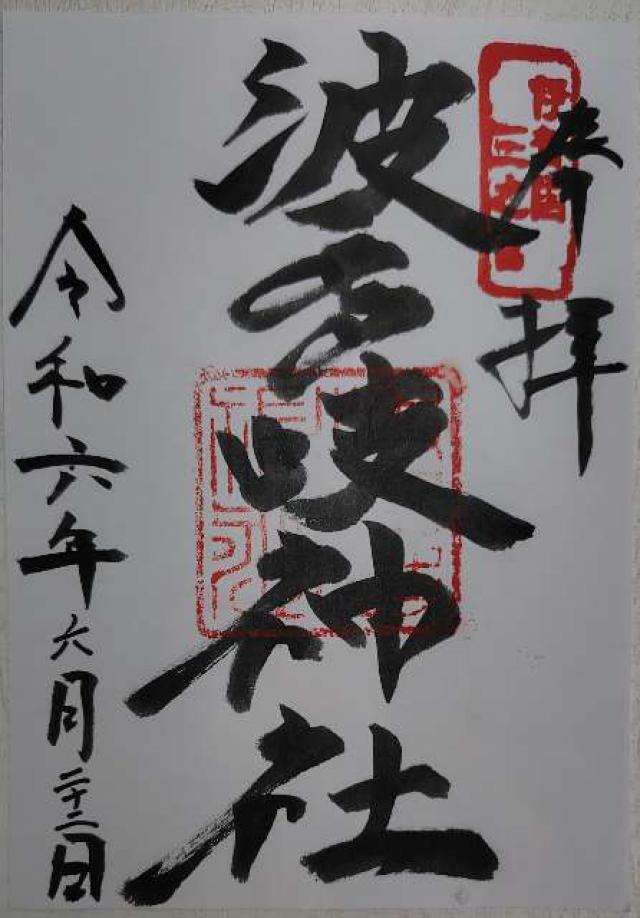 奉拝
波多岐神社
令和六年六月二十二日